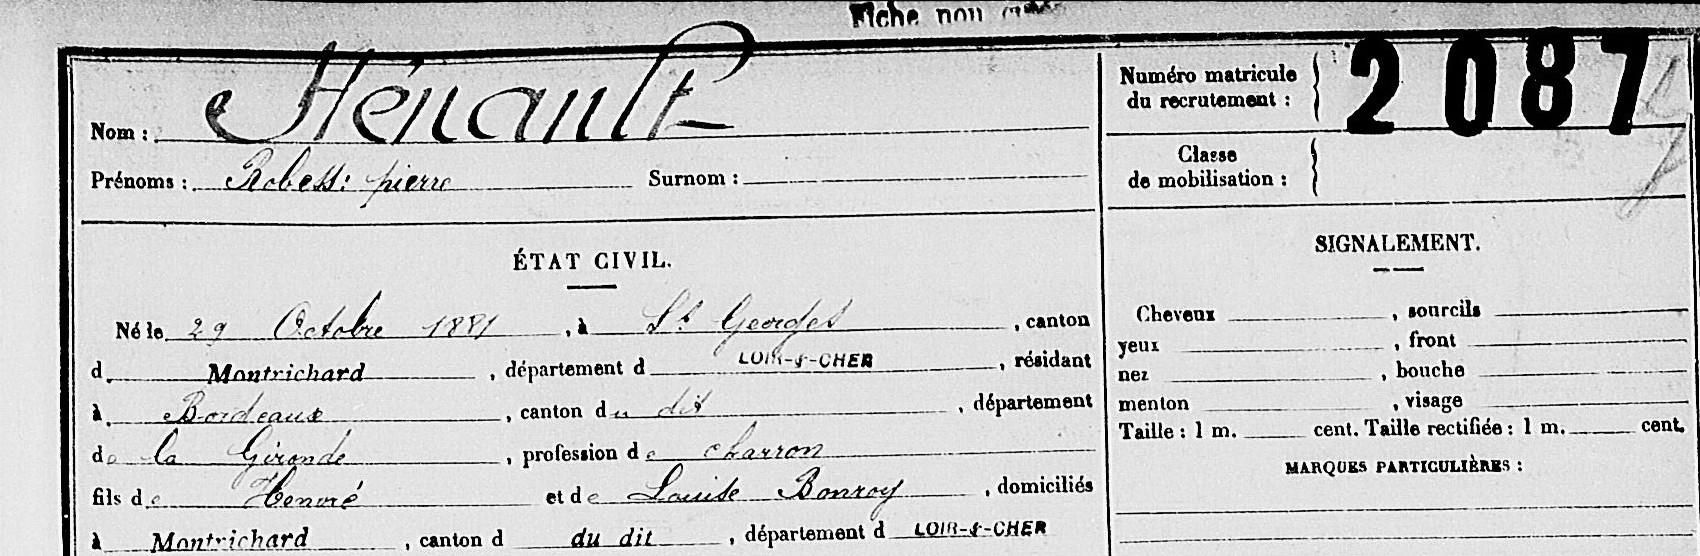 Fiche non
Nom : Hénault
Prénoms : Robert pierre Surnom :
Numéro matricule du recrutement : 2087
Classe de mobilisation :
ÉTAT CIVIL.
Né le 29 Octobre 1881, à St Georges, canton
d Montrichard, département d LOIR-&-CHER, résidant
à Bordeaux, canton du dit, département
de la Gironde, profession de charron
fils de Honoré et de Louise Bonroy, domiciliés
à Montrichard, canton d du dit, département d LOIR-&-CHER
SIGNALEMENT.
Cheveux , sourcils
yeux , front
nez , bouche
menton , visage
Taille : 1 m. cent. Taille rectifiée : 1 m. cent.
MARQUES PARTICULIÈRES :